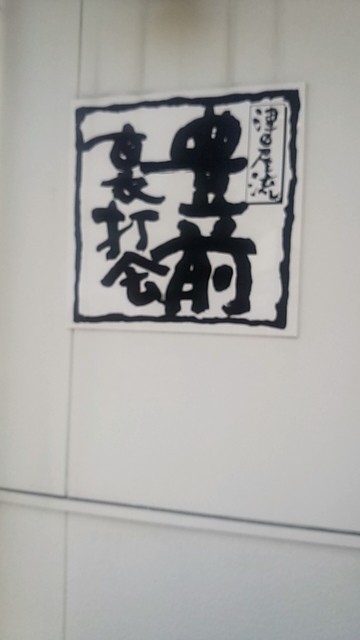 津田屋流
豊前
裏打会